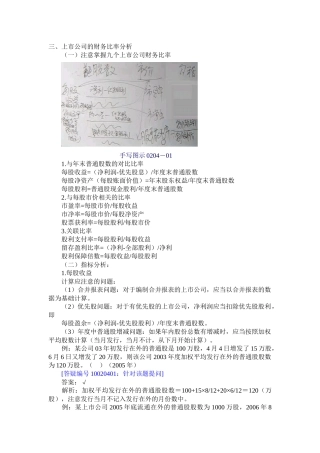 三、上市公司的财务比率分析
（一）注意掌握九个上市公司财务比率
手写图示0204－01
1.与年末普通股数的对比比率
每股收益=（净利润-优先股息）/年度末普通股数
每股净资产（每股账面价值）=年末股东权益/年度末普通股数
每股股利=普通股现金股利/年度末普通股数
2.与每股市价相关的比率
市盈率=每股市价/每股收益
市净率=每股市价/每股净资产
股票获利率=每股股利/每股市价
3.关联比率
股利支付率=每股股利/每股收益
留存盈利比率=（净利-全部股利)/净利
股利保障倍数=每股收益/每股股利
（二）指标分析：
1.每股收益
计算应注意的问题：
（1）合并报表问题：对于编制合并报表的上市公司，应当以合并报表的数
据为基础计算。
（2）优先股问题：对于有优先股的公司，净利润应当扣除优先股股利，
即
每股盈余=（净利润-优先股股利)/年度末普通股数。
（3）年度中普通股增减问题：如果年内股份总数有增减时，应当按照加权
平均股数计算（当月发行，当月不计，从下月开始计算）。
例：某公司 03 年初发行在外的普通股是 100 万股，4 月 4 日增发了 15 万股，
6 月 6 日又增发了 20 万股。则该公司 2003 年度加权平均发行在外的普通股数
为 120 万股。（ ）（2005 年）
[答疑编号 10020401：针对该题提问]
答案：√
解析：加权平均发行在外的普通股股数=100+15×8/12+20×6/12＝120（万
股），注意发行当月不记入发行在外的月份数中。
例：某上市公司 2005 年底流通在外的普通股股数为 1000 万股，2006 年 8